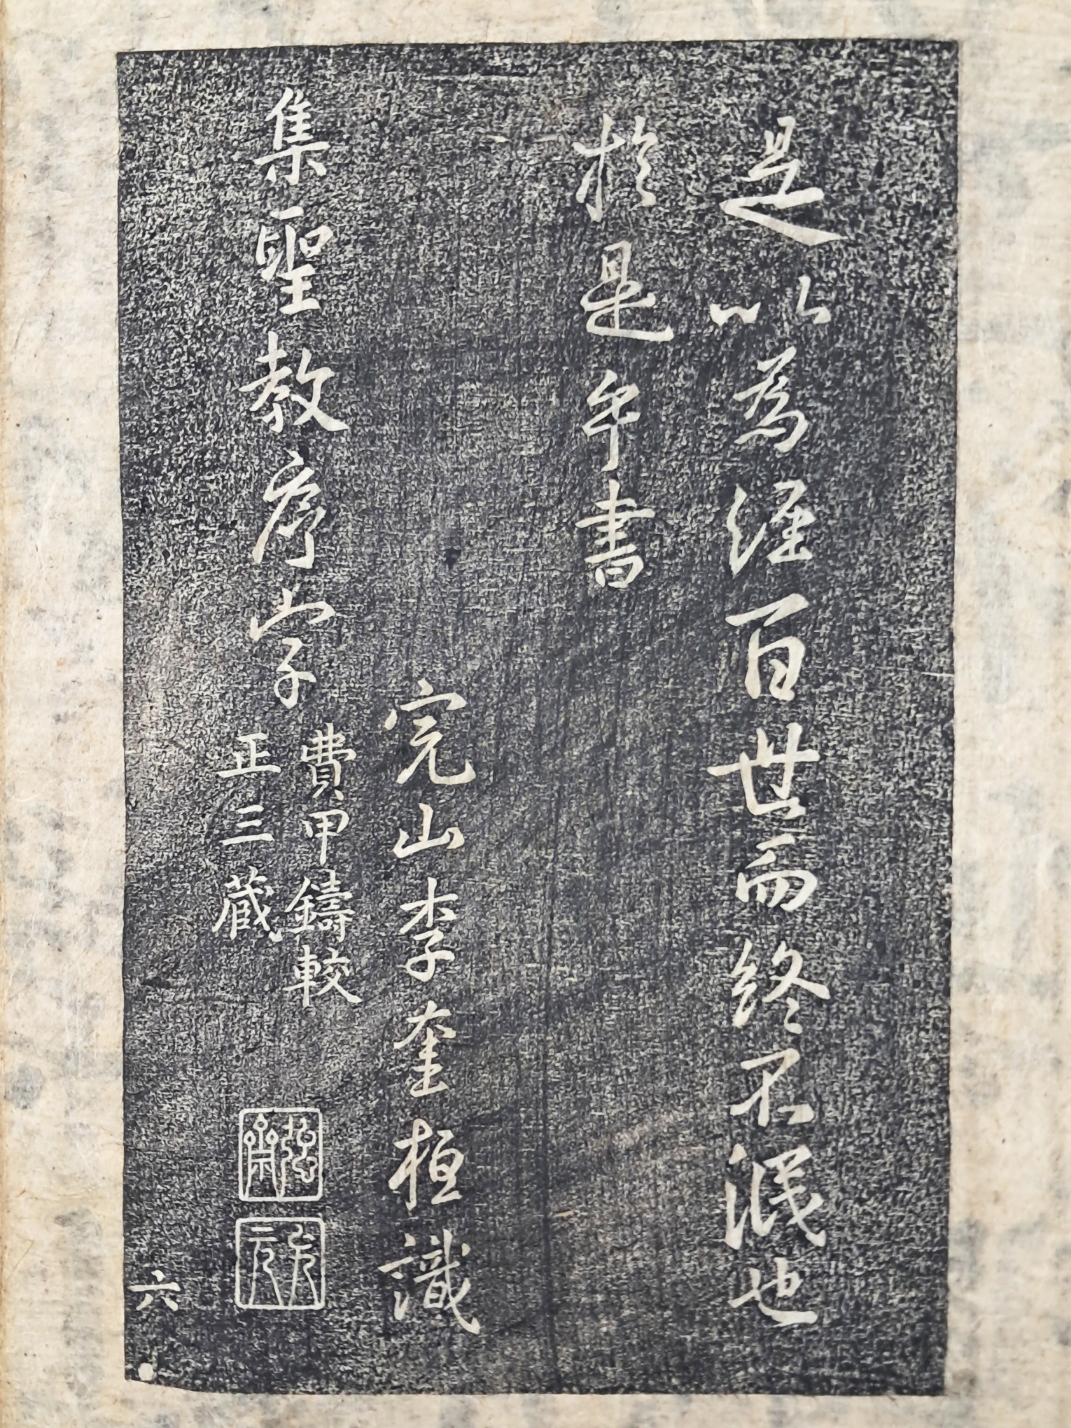 是以為經百世而終不泯也
於是乎書
完山李奎桓識
集聖教序字
費甲鑄較
正三藏
六